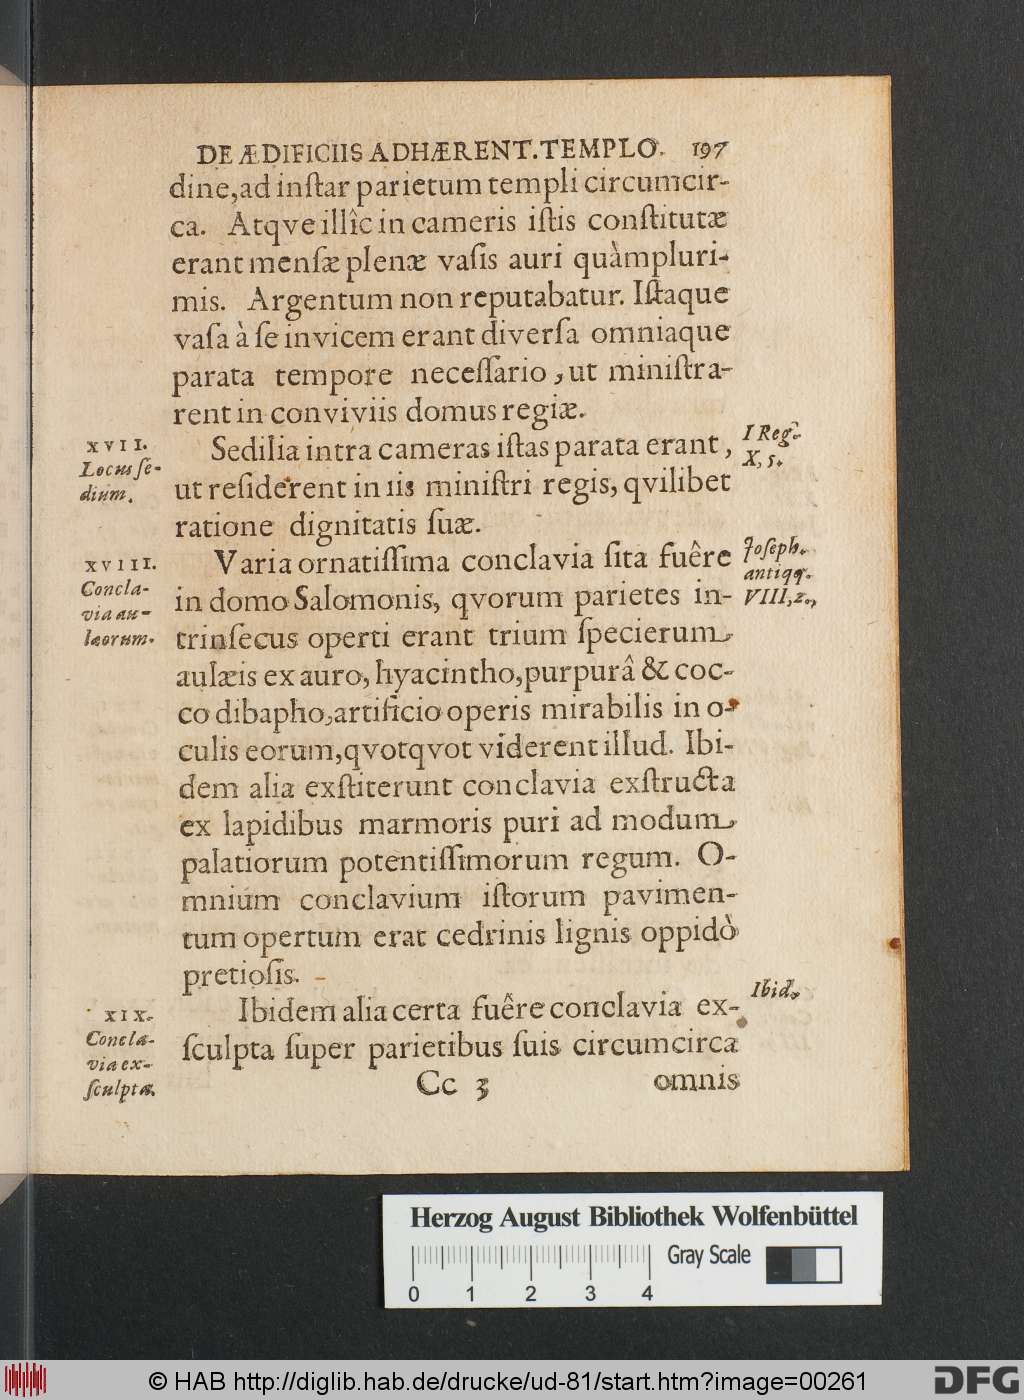 DE ÆDIFICIIS ADHÆRENT. TEMPLO. 197
dine, ad inſtar parietum templi circumcir-
ca. Atqve illîc in cameris iſtis conſtitutæ
erant menſæ plenæ vaſis auri quàmpluri-
mis. Argentum non reputabatur. Iſtaque
vaſa à ſe invicem erant diverſa omniaque
parata tempore neceſſario, ut miniſtra-
rent in conviviis domus regiæ.
XVII.
Locus ſe-
dium.
Sedilia intra cameras iſtas parata erant,
ut reſiderent in iis miniſtri regis, qvilibet
ratione dignitatis ſuæ.
I Reg.
X, 5.
XVIII.
Concla-
via au-
læorum.
Varia ornatiſſima conclavia ſita fuêre
in domo Salomonis, qvorum parietes in-
trinſecus operti erant trium ſpecierum
aulæis ex auro, hyacintho, purpurâ & coc-
co dibapho, artificio operis mirabilis in o-
culis eorum, qvotqvot viderent illud. Ibi-
dem alia exſtiterunt conclavia exſtructa
ex lapidibus marmoris puri ad modum
palatiorum potentiſſimorum regum. O-
mnium conclavium iſtorum pavimen-
tum opertum erat cedrinis lignis oppidò
pretioſis.
Joſeph.
antiqq.
VIII, 2.,
XIX.
Concla-
via ex-
ſculpta.
Ibidem alia certa fuêre conclavia ex-
ſculpta ſuper parietibus ſuis circumcirca
Ibid.
Cc 3 omnis
Herzog August Bibliothek Wolfenbüttel
Gray Scale
0 1 2 3 4
© HAB http://diglib.hab.de/drucke/ud-81/start.htm?image=00261
DFG